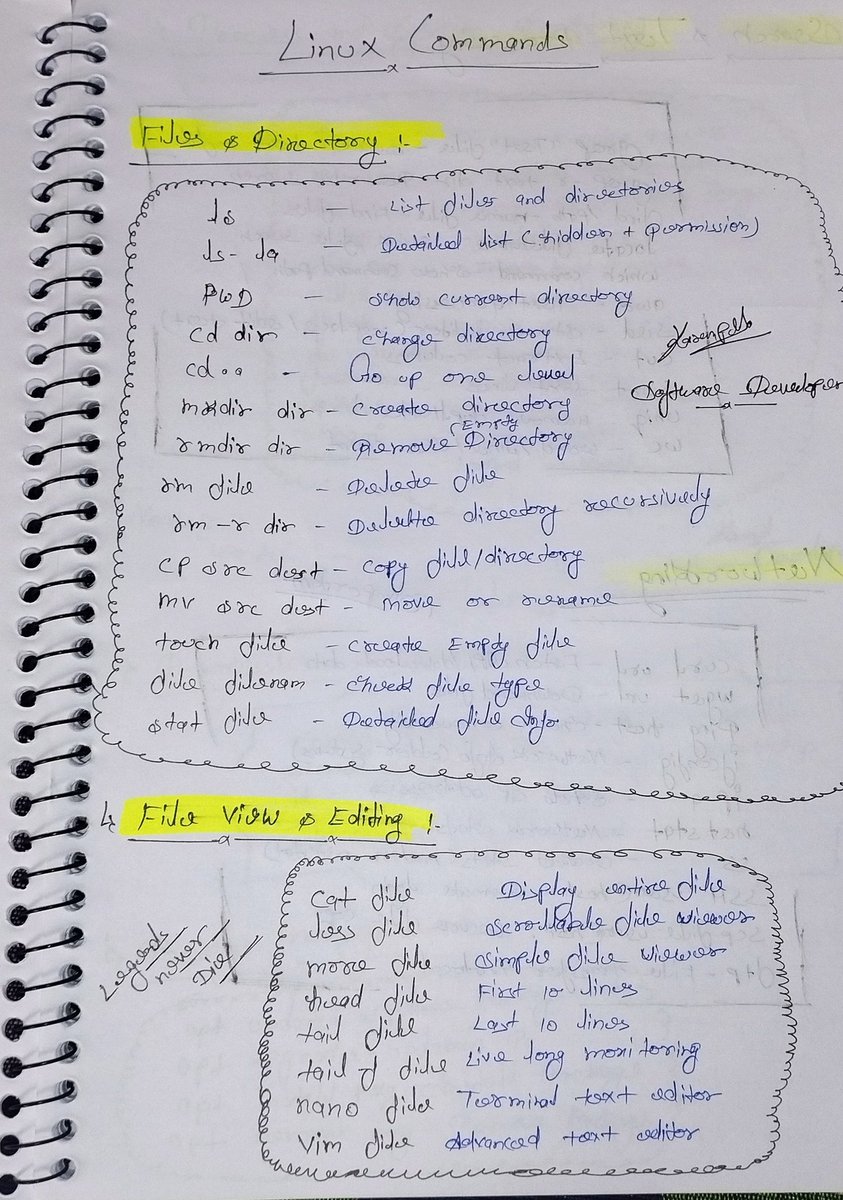 Linux Commands
Files & Directory :-
ls - List files and directories
ls-la - Detailed list (hidden + permission)
PWD - show current directory
cd dir - change directory
cd.. - Go up one level
mkdir dir - create directory
rmdir dir - Remove (Empty Directory
rm file - Delete file
rm -r dir - Delete directory recursively
CP src dest - copy file/directory
mv src dest - move or rename
touch file - create Empty file
file filenam - check file type
stat file - Detailed file Info.
Software Developer
File View & Editing :-
cat file Display entire file
less file scrollable file viewer
more file simple file viewer
head file First 10 lines
tail file Last 10 lines
tail -f file Live long monitoring
nano file Terminal text editor
Vim file Advanced text editor
Legends
never
Die